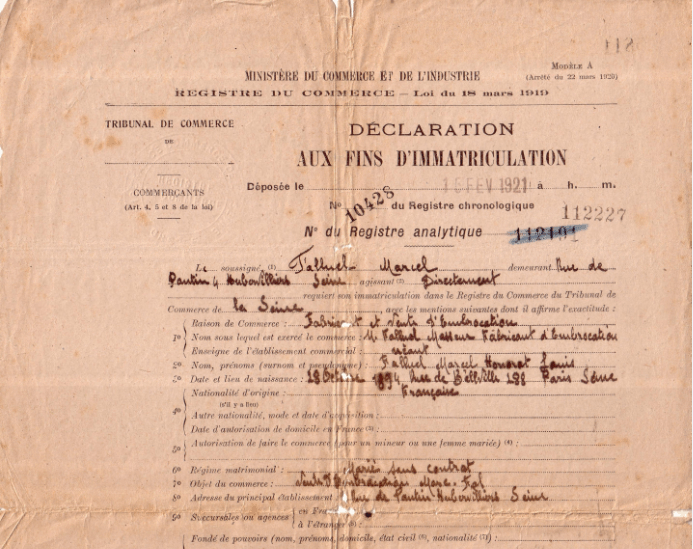 118
MINISTÈRE DU COMMERCE ET DE L'INDUSTRIE
MODÈLE A
(Arrêté du 22 mars 1920)
REGISTRE DU COMMERCE — Loi du 18 mars 1919
TRIBUNAL DE COMMERCE
DE
DÉCLARATION
AUX FINS D'IMMATRICULATION
COMMERÇANTS
(Art. 4, 5 et 8 de la loi)
Déposée le 16 FEV 1921 à h. m.
No 10428 du Registre chronologique
112227
N° du Registre analytique 112191
Le soussigné, (1) Falluel Marcel demeurant Rue de
Pantin 4 Aubervilliers Seine agissant (2) Directement
requiert son immatriculation dans le Registre du Commerce du Tribunal de
Commerce de la Seine, avec les mentions suivantes dont il affirme l'exactitude :
Raison de Commerce : Fabricant et Vente d'Embrocation
1o Nom sous lequel est exercé le commerce : M. Falluel Masseur Fabricant d'Embrocation
Enseigne de l'établissement commercial : néant
2o Nom, prénoms (surnom et pseudonyme) : Falluel Marcel Honorat Louis
3o Date et lieu de naissance : 18 Octobre 1894 Rue de Belleville 188 Paris Seine
Nationalité d'origine : Française
(s'il y a lieu)
4o Autre nationalité, mode et date d'acquisition :
Date d'autorisation de domicile en France (3) :
5o Autorisation de faire le commerce (pour un mineur ou une femme mariée) (4) :
6o Régime matrimonial : Marié sans contrat
7o Objet du commerce : Vente d'Embrocation Marc-Fal
8o Adresse du principal établissement : 4 Rue de Pantin Aubervilliers Seine
9o Succursales ou agences en
à l'étranger
Fondé de pouvoirs (nom, prénoms, domicile, état civil, nationalité) :